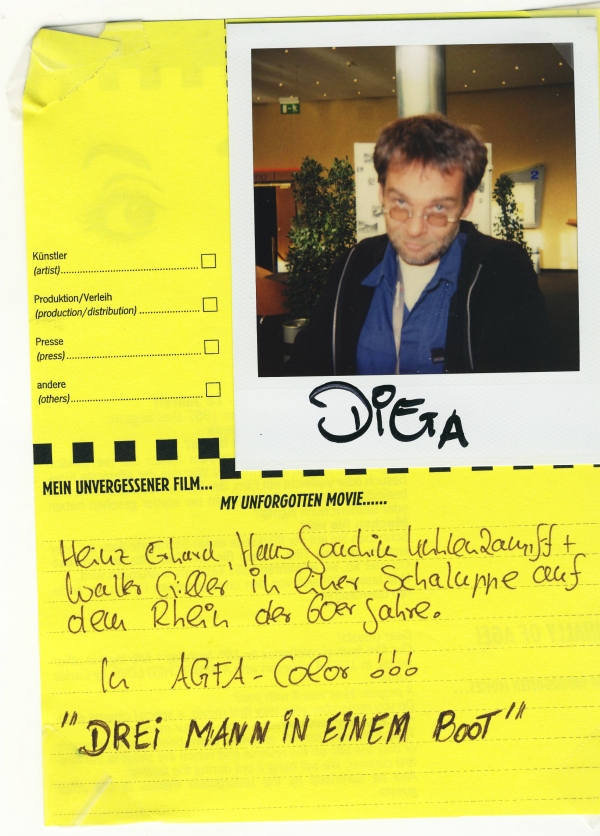 2
Künstler
(artist)
Produktion/Verleih
(production/distribution)
Presse
(press)
andere
(others)
DiEGA
MEIN UNVERGESSENER FILM...
MY UNFORGOTTEN MOVIE......
Heinz Erhard, Hans Joachim Kuhlenkampff +
Walter Giller in einer Schaluppe auf
dem Rhein der 60er Jahre.
In AGFA-Color !!!
"DREi MANN iN EiNEM BOOT"